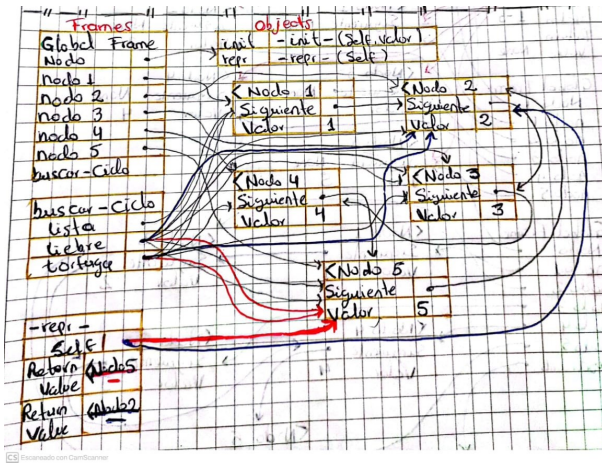 Frames
Objects
Global Frame
Nodo
nodo 1
nodo 2
nodo 3
nodo 4
nodo 5
buscar-Ciclo
init -init-(Self, valor)
repr -repr-(Self)
<Nodo 1
Siguiente
Valor 1
<Nodo 2
Siguiente
Valor 2
<Nodo 4
Siguiente
Valor 4
<Nodo 3
Siguiente
Valor 3
buscar-Ciclo
lista
liebre
tortuga
<Nodo 5
Siguiente
Valor 5
-repr-
Self
Retorn <Nodo5
Value
Return <Nodo2
Value
CS Escaneado con CamScanner